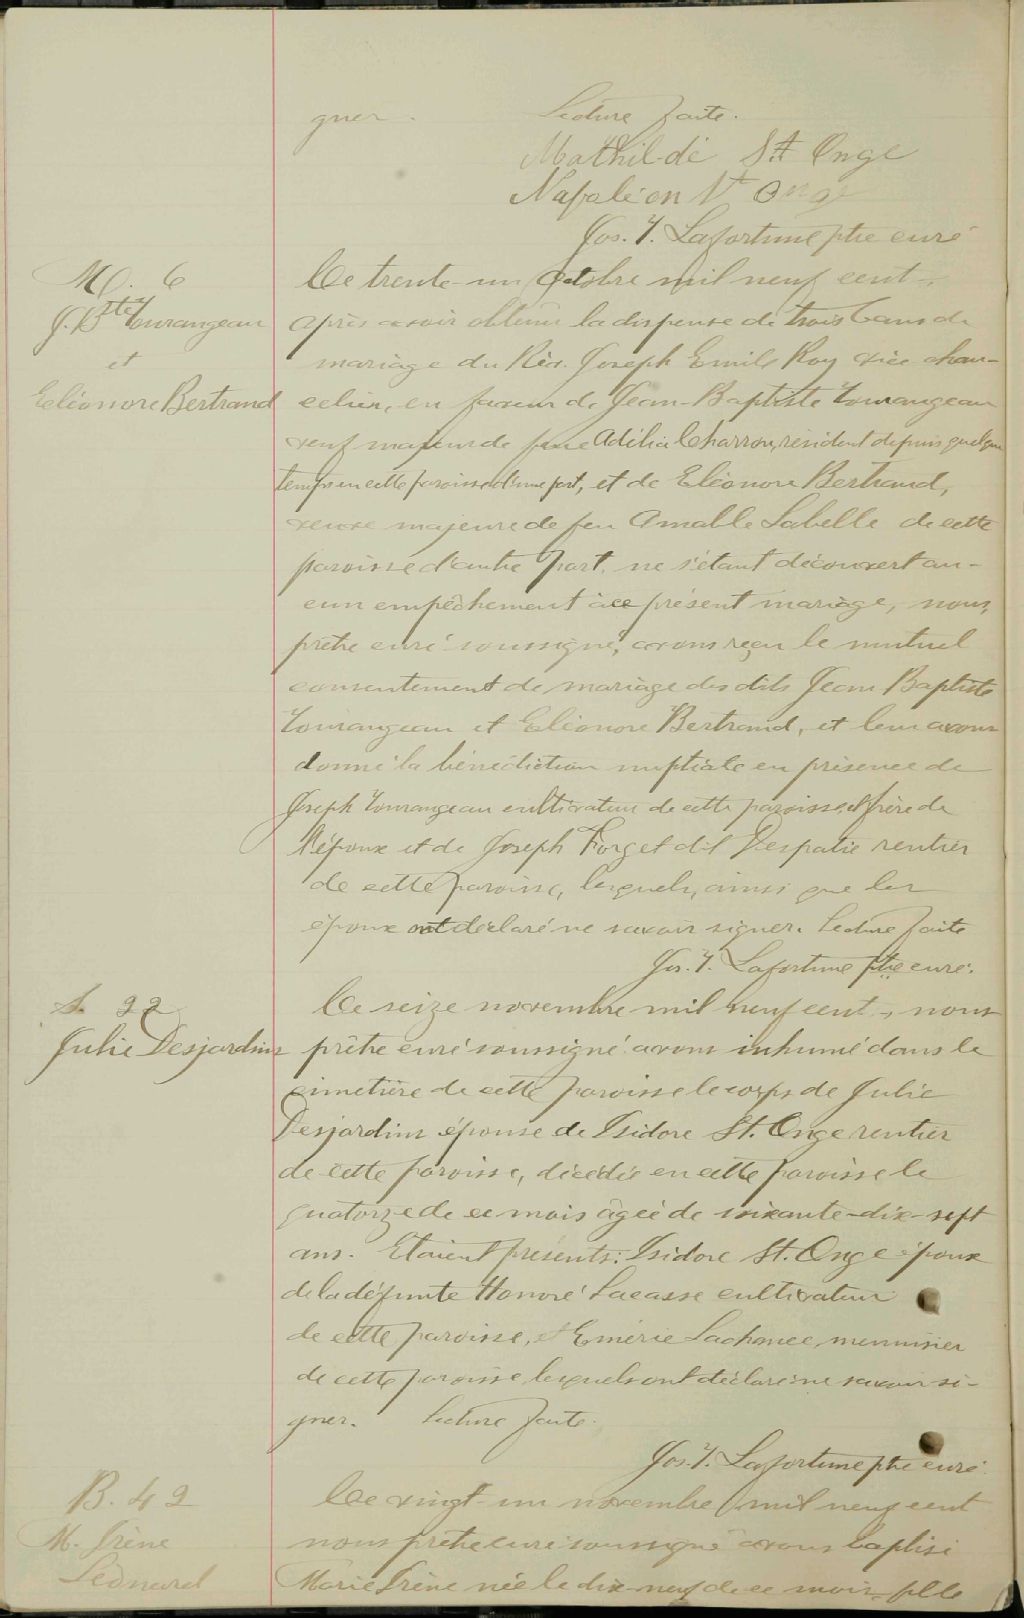 gner. Lecture faite.
Mathilde St Onge
Napoléon St Onge
Jos. T. Lafortune ptre curé
M. 6
J. Bte Tourangeau
et
Eléonore Bertrand
Le trente-un octobre mil neuf cent,
après avoir obtenu la dispense de trois bans de
mariage du Rév. Joseph Emile Roy vice chan-
celier, en faveur de Jean-Baptiste Tourangeau
veuf majeur de feue Adélia Charron, résident depuis quelque
temps en cette paroisse d'une part, et de Eléonore Bertrand,
veuve majeure de feu Amable Labelle de cette
paroisse d'autre part, ne s'étant découvert au-
cun empêchement à ce présent mariage, nous,
prêtre curé soussigné, avons reçu le mutuel
consentement de mariage des dits Jean Baptiste
Tourangeau et Eléonore Bertrand, et leur avons
donné la bénédiction nuptiale en présence de
Joseph Tourangeau cultivateur de cette paroisse et frère de
l'époux et de Joseph Forget dit Despatie rentier
de cette paroisse, lesquels, ainsi que les
époux ont déclaré ne savoir signer. Lecture faite
Jos. T. Lafortune ptre curé.
S. 22
Julie Desjardins
Le seize novembre mil neuf cent, nous
prêtre curé soussigné avons inhumé dans le
cimetière de cette paroisse le corps de Julie
Desjardins épouse de Isidore St. Onge rentier
de cette paroisse, décédée en cette paroisse le
quatorze de ce mois âgée de soixante-dix-sept
ans. Etaient présents: Isidore St. Onge époux
de la défunte Honoré Lacasse cultivateur
de cette paroisse, et Emérie Lachance, menuisier
de cette paroisse lesquels ont déclaré ne savoir si-
gner. Lecture faite.
Jos. T. Lafortune ptre curé.
B. 42
M. Irène
Léonard
Le vingt-un novembre mil neuf cent
nous prêtre curé soussigné avons baptisé
Marie Irène née le dix-neuf de ce mois, fille